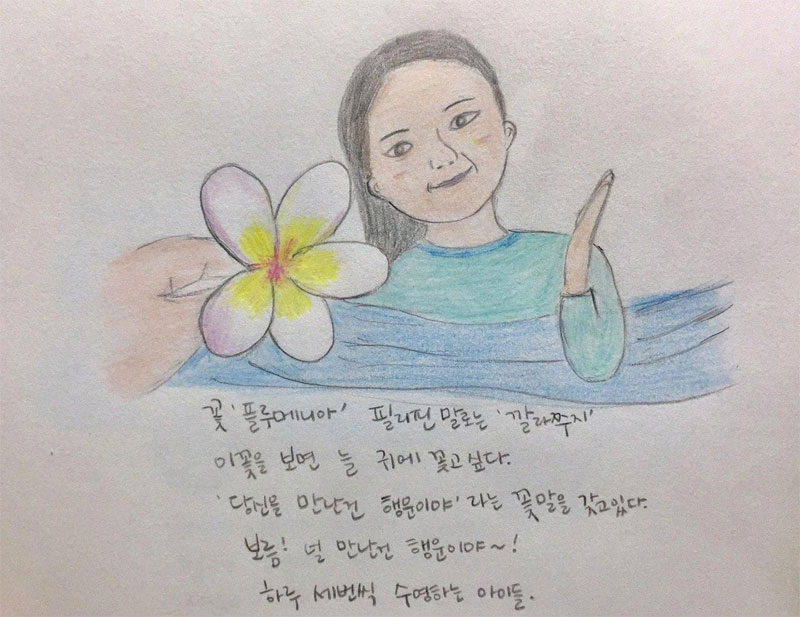 꽃 '플루메니아' 필리핀 말로는 '깔라쭈지'
이꽃을 보면 늘 귀에 꽂고싶다.
'당신을 만난건 행운이야' 라는 꽃말을 갖고있다.
보름! 널 만난건 행운이야~!
하루 세번씩 수영하는 아이들.